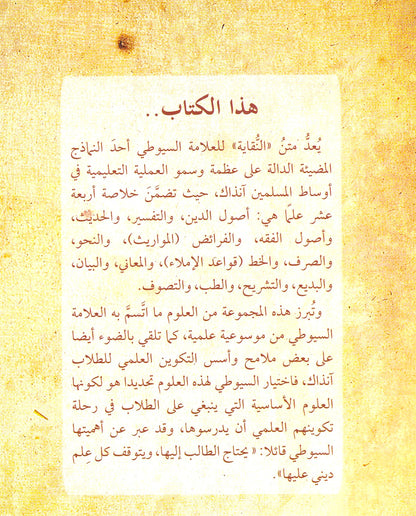 هذا الكتاب..
يُعدُّ متنُ «النُّقاية» للعلامة السيوطي أحدَ النماذج
المضيئة الدالة على عظمة وسمو العملية التعليمية في
أوساط المسلمين آنذاك، حيث تضمَّنَ خلاصة أربعة
عشر علمًا هي: أصول الدين، والتفسير، والحديث،
وأصول الفقه، والفرائض (المواريث)، والنحو،
والصرف، والخط (قواعد الإملاء)، والمعاني، والبيان،
والبديع، والتشريح، والطب، والتصوف.
وتُبرز هذه المجموعة من العلوم ما اتَّسمَ به العلامة
السيوطي من موسوعية علمية، كما تلقي بالضوء أيضا
على بعض ملامح وأسس التكوين العلمي للطلاب
آنذاك، فاختيار السيوطي لهذه العلوم تحديدا هو لكونها
العلوم الأساسية التي ينبغي على الطلاب في رحلة
تكوينهم العلمي أن يدرسوها، وقد عبر عن أهميتها
السيوطي قائلا: «يحتاج الطالب إليها، ويتوقف كل عِلم
ديني عليها».